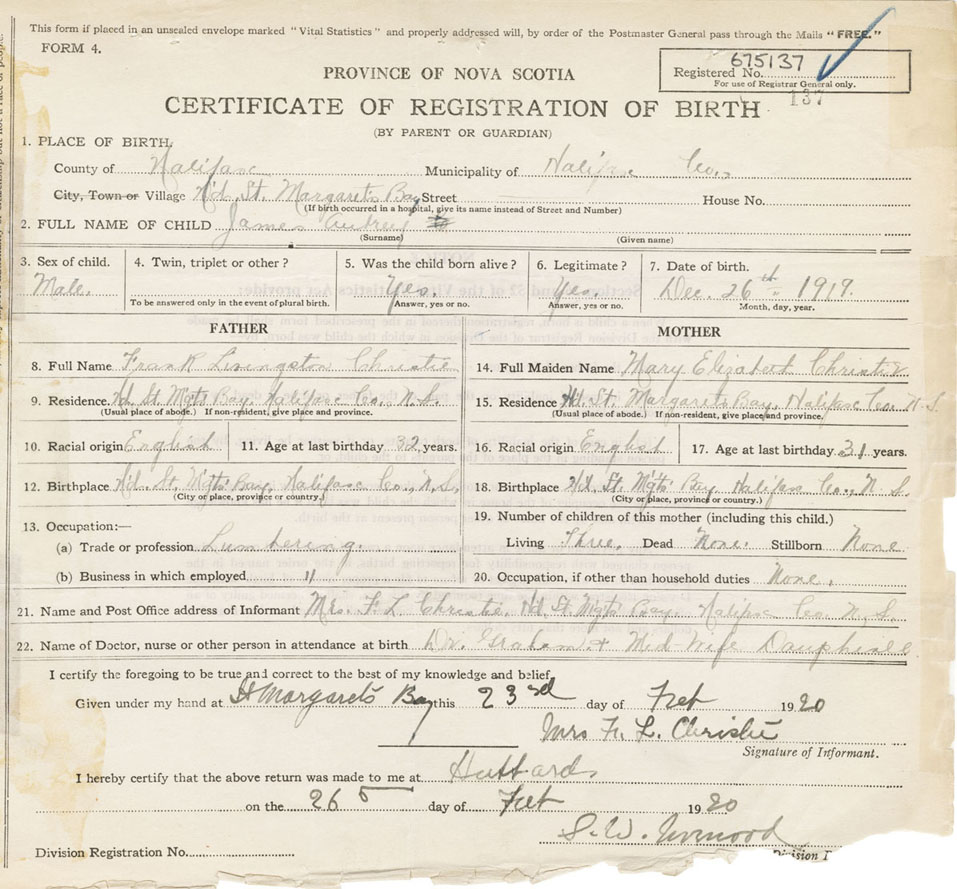 This form if placed in an unsealed envelope marked "Vital Statistics" and properly addressed will, by order of the Postmaster General pass through the Mails "FREE."
FORM 4.
675137
Registered No.
For use of Registrar General only.
137
PROVINCE OF NOVA SCOTIA
CERTIFICATE OF REGISTRATION OF BIRTH
(BY PARENT OR GUARDIAN)
1. PLACE OF BIRTH,
County of Halifax Municipality of Halifax Co.
City, Town or Village H'd. St. Margaret's Bay Street House No.
(If birth occurred in a hospital, give its name instead of Street and Number)
2. FULL NAME OF CHILD James Audrey
(Surname) (Given name)
3. Sex of child. 4. Twin, triplet or other? 5. Was the child born alive? 6. Legitimate? 7. Date of birth.
Male. Yes. Yes. Dec. 26th 1919.
To be answered only in the event of plural birth. Answer, yes or no. Answer, yes or no. Month, day, year.
FATHER MOTHER
8. Full Name Frank Livingston Christie 14. Full Maiden Name Mary Elizabeth Christie
9. Residence. Hd. St. Mgts Bay, Halifax Co., N.S. 15. Residence Hd. St. Margarets Bay, Halifax Co. N.S.
(Usual place of abode.) If non-resident, give place and province. (Usual place of abode.) If non-resident, give place and province.
10. Racial origin English 11. Age at last birthday 32 years. 16. Racial origin English 17. Age at last birthday 31 years.
12. Birthplace H'd. St. Mgts' Bay, Halifax Co., N.S. 18. Birthplace Hd. St. Mgts' Bay Halifax Co., N.S.
(City or place, province or country.) (City or place, province or country.)
13. Occupation:— 19. Number of children of this mother (including this child.)
(a) Trade or profession Lumbering. Living Three. Dead None. Stillborn None
(b) Business in which employed " 20. Occupation, if other than household duties None.
21. Name and Post Office address of Informant Mrs. F. L. Christie, Hd. St. Mgts' Bay. Halifax Co. N.S.
22. Name of Doctor, nurse or other person in attendance at birth Dr. Graham + Mid-Wife Dauphinee
I certify the foregoing to be true and correct to the best of my knowledge and belief,
Given under my hand at St Margarets Bay this 23rd day of Feb 1920
Mrs F. L. Christie
Signature of Informant.
I hereby certify that the above return was made to me at Hubbards
on the 26 day of Feb 1920
S. W.
Division Registration No. Division